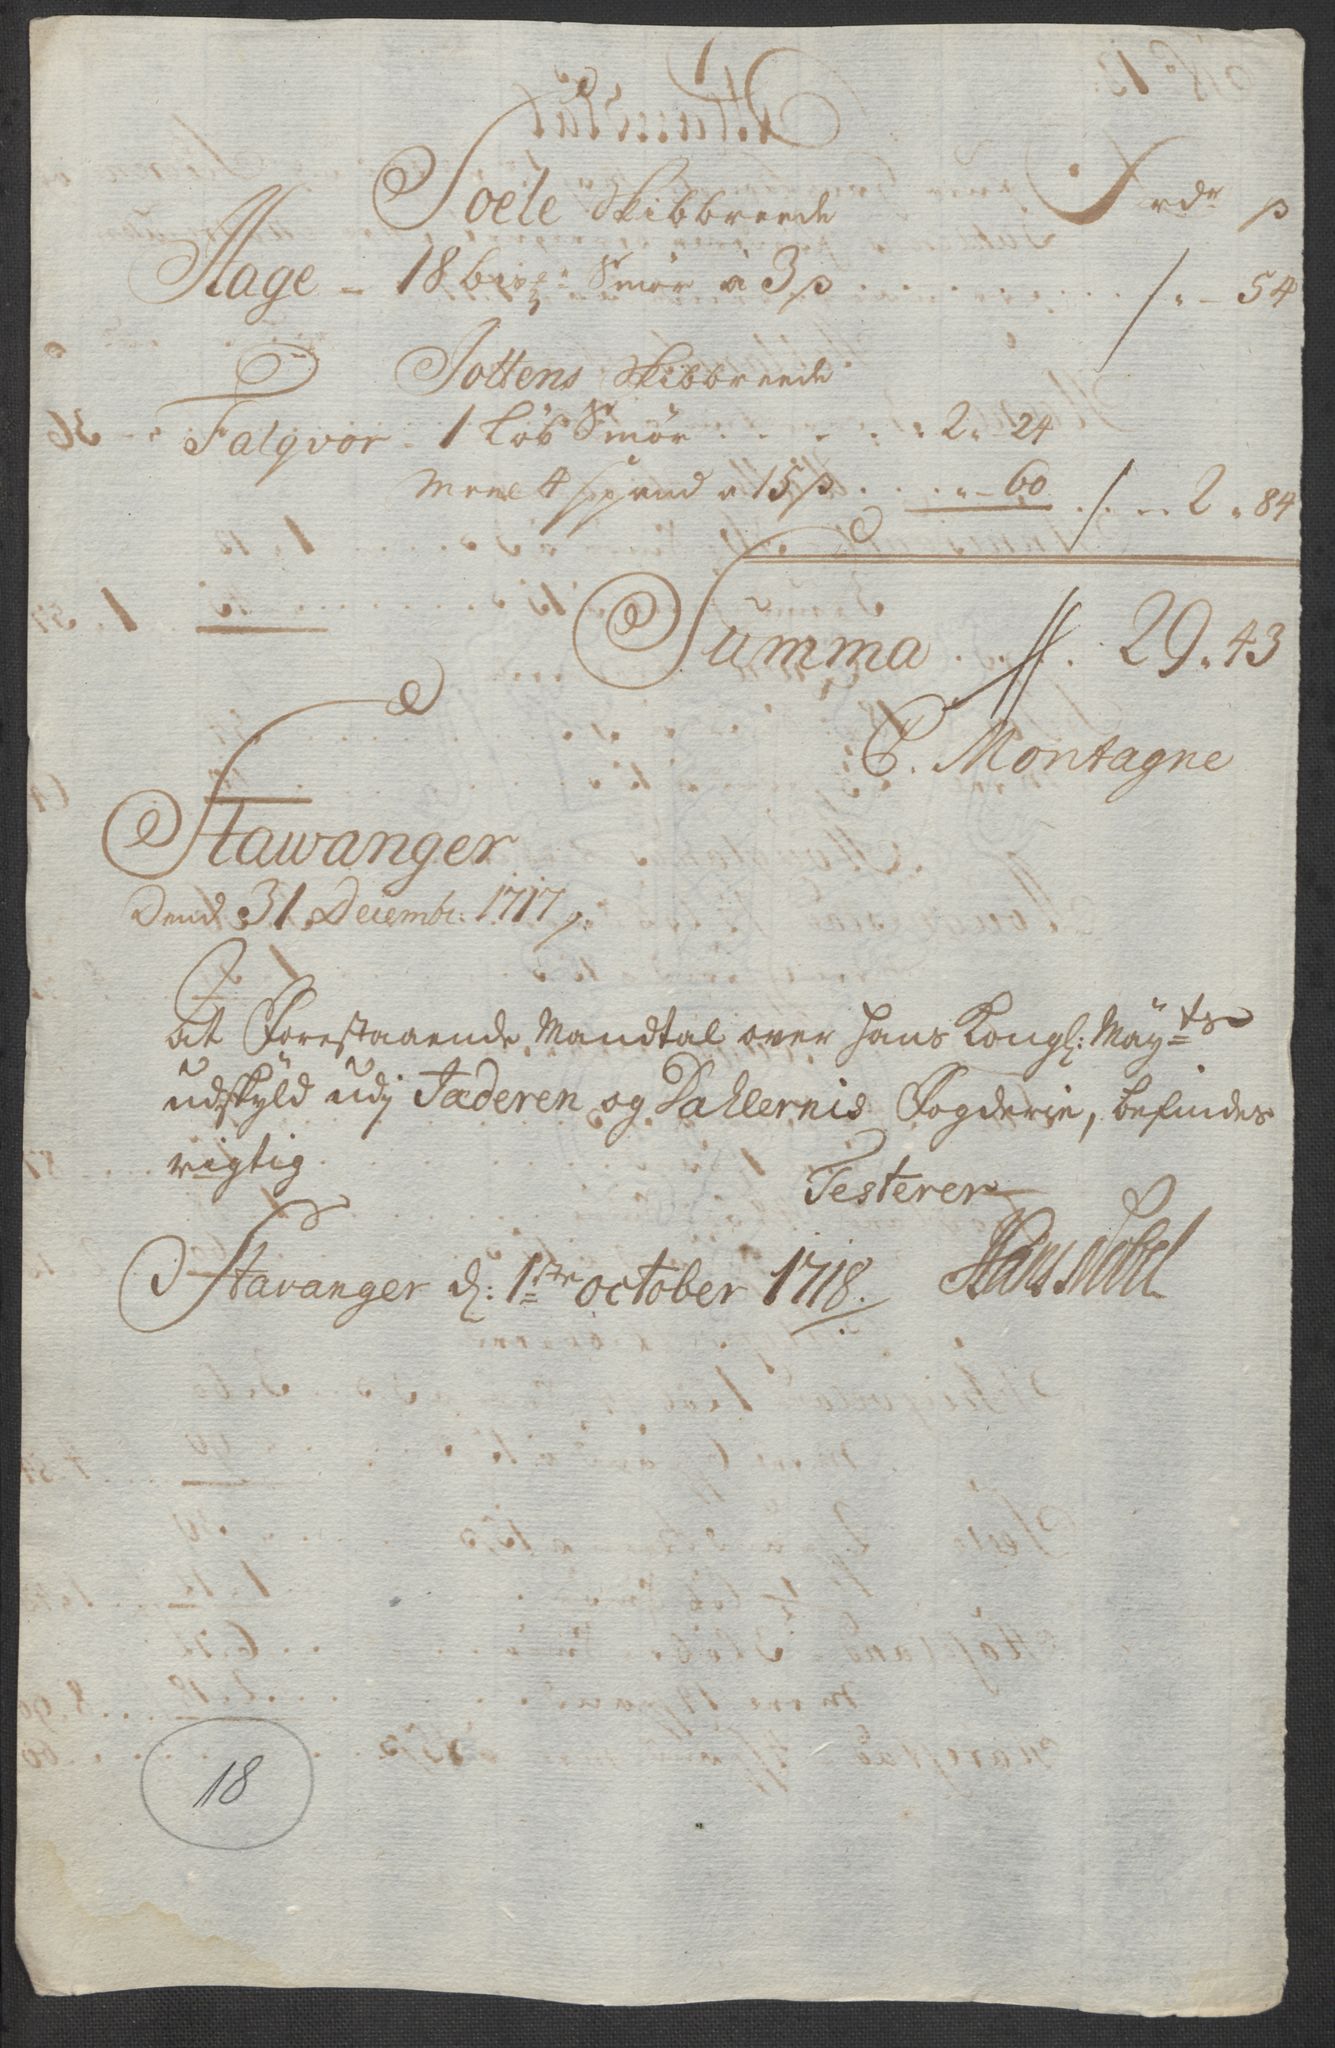 Soele Skibbreede rdr ß
Hage - 18 bis: Smör à 3 ß / „ - 54
Jottens Skibbreede
Falqvor - 1 Löb Smör . . . . 2 „ 24
Meel 4 spand a 15 ß . . . „ - 60 / . - 2 „ 84
Summa . 29 „ 43
C. Montagne
Stawanger
Dend 31 Decembr: 1717
At Forestaaende Mandtal over Hans Kongl: Mayts
udskyld udj Jæderen og Dahlernis Fogderie, befindes
rigtig
Testerer
Stavanger d: 1ste October 1718. Hans Nobel
18